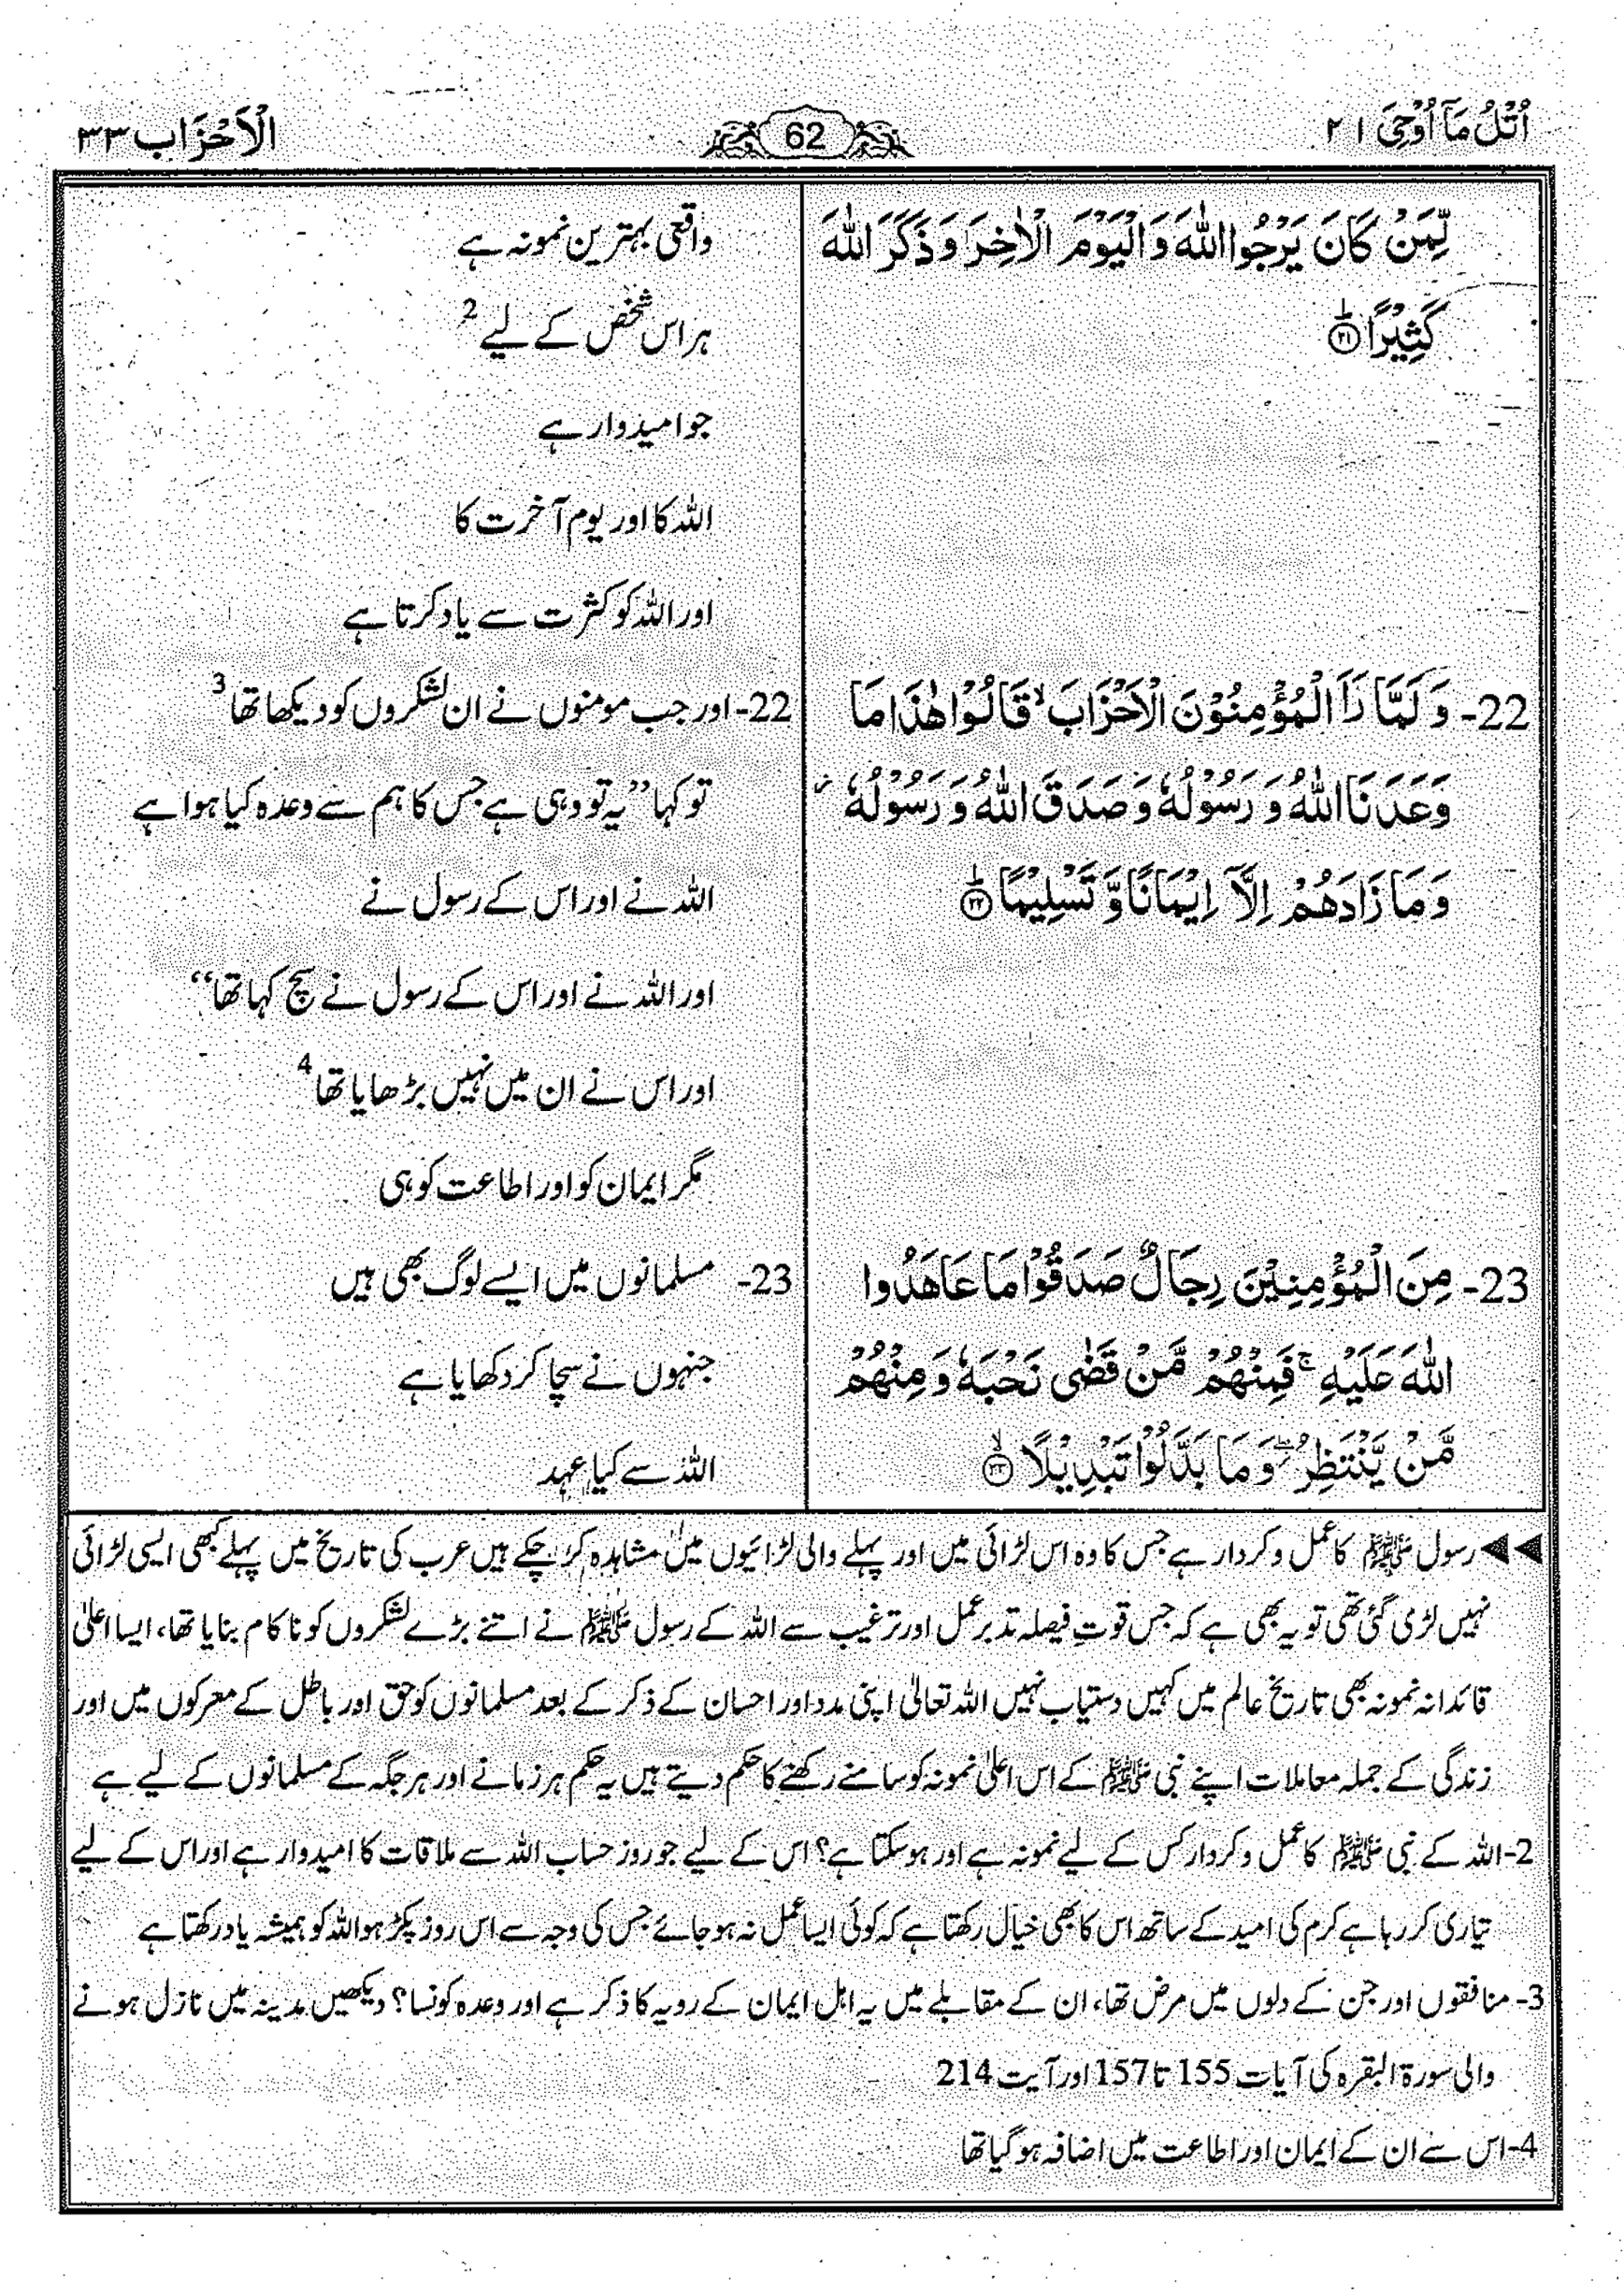 اُتْلُ مَآ اُوْحِیَ ۲۱
62
الْاَحْزَاب ۳۳
لِّمَنْ كَانَ يَرْجُوا اللّٰهَ وَالْيَوْمَ الْاٰخِرَ وَذَكَرَ اللّٰهَ
كَثِيْرًا ؕ۲۱
22- وَلَمَّا رَاَ الْمُؤْمِنُوْنَ الْاَحْزَابَ ۙ قَالُوْا هٰذَا مَا
وَعَدَنَا اللّٰهُ وَرَسُوْلُهٗ وَصَدَقَ اللّٰهُ وَرَسُوْلُهٗ ز
وَمَا زَادَهُمْ اِلَّآ اِيْمَانًا وَّتَسْلِيْمًا ؕ۲۲
23- مِنَ الْمُؤْمِنِيْنَ رِجَالٌ صَدَقُوْا مَا عَاهَدُوا
اللّٰهَ عَلَيْهِ ۚ فَمِنْهُمْ مَّنْ قَضٰى نَحْبَهٗ وَمِنْهُمْ
مَّنْ يَّنْتَظِرُ ۖ وَمَا بَدَّلُوْا تَبْدِيْلًا ۙ۲۳
واقعی بہترین نمونہ ہے
ہر اس شخص کے لیے 2
جو امیدوار ہے
اللہ کا اور یوم آخرت کا
اور اللہ کو کثرت سے یاد کرتا ہے
22- اور جب مومنوں نے ان لشکروں کو دیکھا تھا 3
تو کہا ’’یہ تو وہی ہے جس کا ہم سے وعدہ کیا ہوا ہے
اللہ نے اور اس کے رسول نے
اور اللہ نے اور اس کے رسول نے سچ کہا تھا‘‘
اور اس نے ان میں نہیں بڑھایا تھا 4
مگر ایمان کو اور اطاعت کو ہی
23- مسلمانوں میں ایسے لوگ بھی ہیں
جنہوں نے سچا کر دکھایا ہے
اللہ سے کیا عہد
◀◀ رسول ﷺ کا عمل و کردار ہے جس کا وہ اس لڑائی میں اور پہلے والی لڑائیوں میں مشاہدہ کر چکے ہیں عرب کی تاریخ میں پہلے کبھی ایسی لڑائی
نہیں لڑی گئی تھی تو یہ بھی ہے کہ جس قوتِ فیصلہ تدبر عمل اور ترغیب سے اللہ کے رسول ﷺ نے اتنے بڑے لشکروں کو ناکام بنایا تھا، ایسا اعلیٰ
قائدانہ نمونہ بھی تاریخ عالم میں کہیں دستیاب نہیں اللہ تعالیٰ اپنی مدد اور احسان کے ذکر کے بعد مسلمانوں کو حق اور باطل کے معرکوں میں اور
زندگی کے جملہ معاملات اپنے نبی ﷺ کے اس اعلیٰ نمونہ کو سامنے رکھنے کا حکم دیتے ہیں یہ حکم ہر زمانے اور ہر جگہ کے مسلمانوں کے لیے ہے
2- اللہ کے نبی ﷺ کا عمل و کردار کس کے لیے نمونہ ہے اور ہو سکتا ہے؟ اس کے لیے جو روز حساب اللہ سے ملاقات کا امیدوار ہے اور اس کے لیے
تیاری کر رہا ہے کرم کی امید کے ساتھ اس کا بھی خیال رکھتا ہے کہ کوئی ایسا عمل نہ ہو جائے جس کی وجہ سے اس روز پکڑ ہو اللہ کو ہمیشہ یاد رکھتا ہے
3- منافقوں اور جن کے دلوں میں مرض تھا، ان کے مقابلے میں یہ اہل ایمان کے رویہ کا ذکر ہے اور وعدہ کونسا؟ دیکھیں مدینہ میں نازل ہونے
والی سورۃ البقرہ کی آیات 155 تا 157 اور آیت 214
4- اس سے ان کے ایمان اور اطاعت میں اضافہ ہو گیا تھا